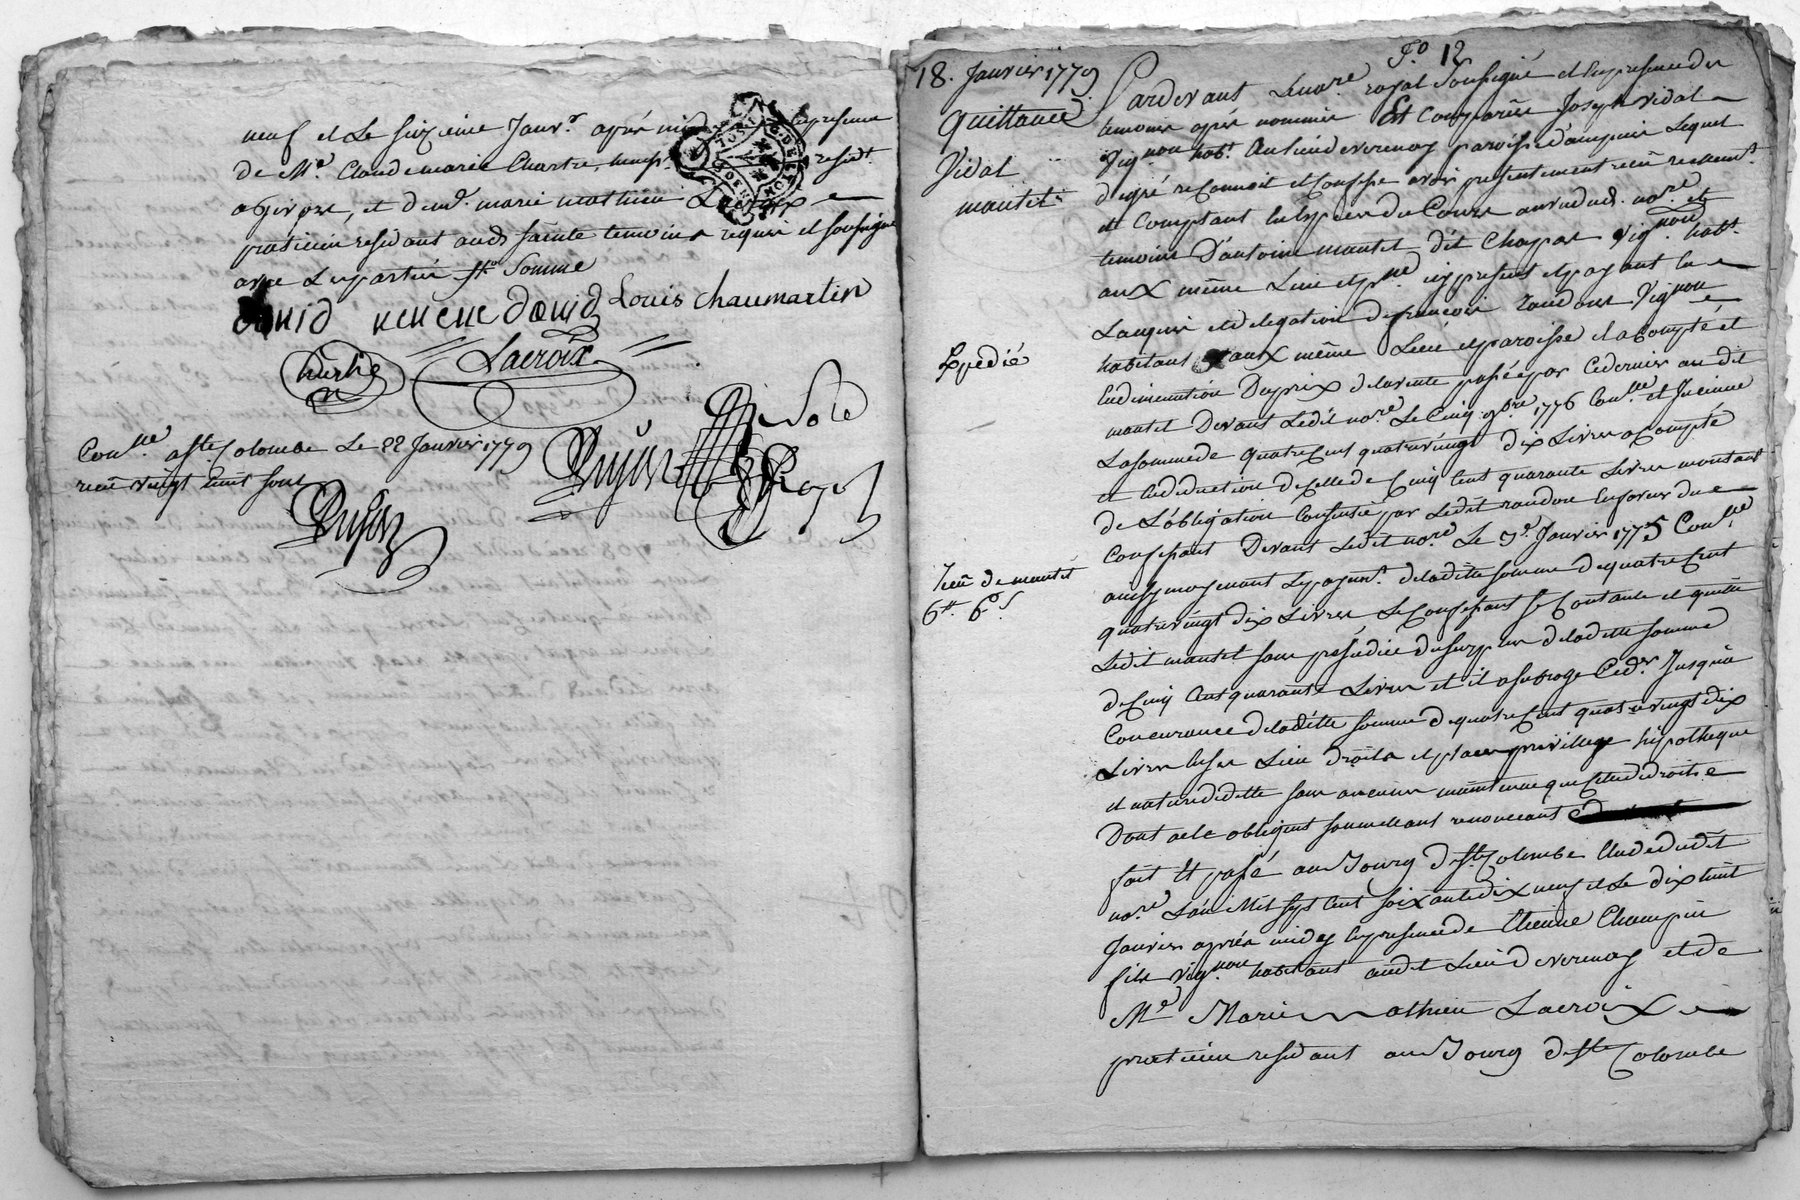 neuf et Le sizieme Janv.r après mid
de M.e Claude marie Chartre, resid.t
a givors, et de m.e marie mathieu Lacroix
praticien residant aud. sainte temoins requis et soussignés
avec Les parties Somme
david david Louis chaumartin
Lacroix
Con.lle a s.te Colombe Le 22 Janvier 1779
reçu vingt huit sous
Dujon
Dujon
F.o 12
18. Janvier 1779
Quittance
Vidal
mantel
Expédié
reçu de mantel
6.tt 6.s
Pardevant Le no.re royal soussigné et En presence des
temoins apres nommés Est Comparu Joseph Vidal
Vig.non hab.t Au lieu de verenay paroisse d'ampuis Lequel
de gré reconnoit et Confesse avoir presentement reçu reellem.t
et Comptant En Especes du Cours au vu dud. no.re et
temoins D'antoine mantel dit Chapas vig.non hab.t
aux même Lieu et p.sse icy present et payant En
L'acquis et delegation de francois randon Vignon
habitant aux même Lieu et paroisse et a Compté et
En diminution Du prix de la vente passée par Ce dernier au dit
mantel Devant Ledit no.re Le Cinq 9.bre 1776 Con.lle et Insinué
La somme de quatre Cent quatre vingt dix Livres a Compte
et En deduction de Celle de Cinq Cent quarante Livres montant
de L'obligation Consentie par Ledit randon En faveur du
Confessant Devant Ledit no.re Le 7.e Janvier 1775 Con.lle
au moyenant Le payem.t de la ditte somme de quatre Cent
quatre vingt dix Livres Le Confessant se Contante et quitte
Ledit mantel sans prejudice du surplus de la ditte somme
de Cinq Cent quarante Livres et il a subrogé Led.t Jusqu'à
Concurrance de la ditte somme de quatre Cent quatre vingt dix
Livres En ses Lieu droits et place privillege hipotheque
et nature de dette sans aucune maintenue que de droit
Dont acte obligent soumettant renonceant
fait Et passé au Bourg de s.te Colombe Etude dudit
no.re L'an Mil Sept Cent soixante dix neuf et Le dix huit
Janvier après midy En presence de Etienne Champin
fils vig.non habitant audit Lieu de verenay et de
M.e Marie mathieu Lacroix
praticien residant au Bourg de s.te Colombe